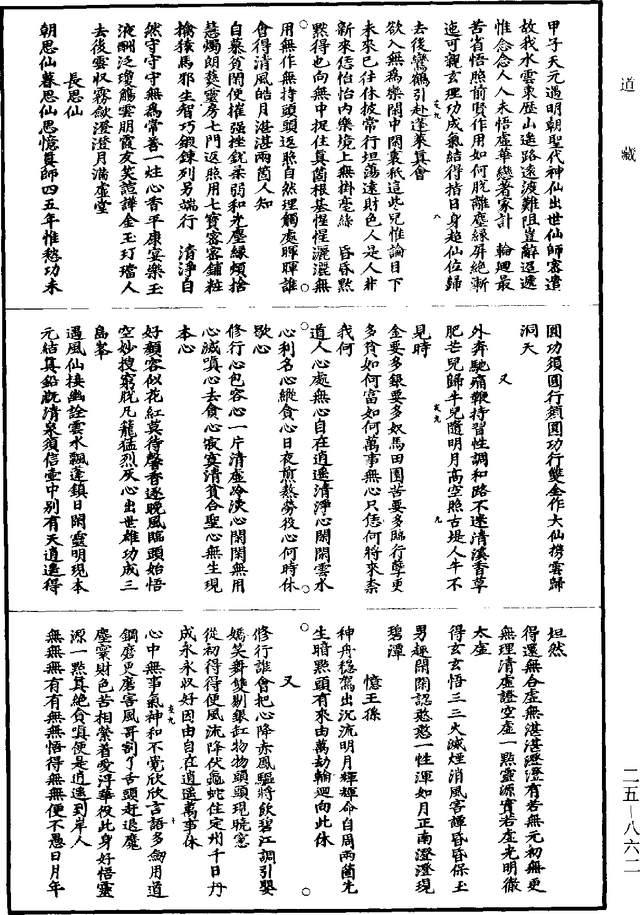 道藏
甲子天元遇明朝聖代神仙出世仙師密遣
故我水雲東歷山遥路遠渡難阻豈辭迢遞
惟念念人人未悟虛華戀著家計 輪廻最
苦省悟照前賢作用如何脱離塵緣屏絶漸
迄可觀玄理功成氣結得指日身超仙位歸
去後鸞鶴引赴蓬萊真會
欲入無為樂閑中閑裏秖這些兒惟論目下
未來已往休披常行坦蕩遠財色人是人非
新來恁怡怡内樂境上無掛毫絲 昏昏默
默得也向無中捉住真箇根基惺惺灑灑無
用無作無持頭頭返照自然理觸處暉暉誰
會得清風皓月湛湛兩箇人知
自慕貧閑便摧强挫銳柔弱和光塵緣頻捨
慧燭朗㷫靈房七門返照用七寶密密鋪粧
擒猿馬邪生智巧鍛鍊列另端行 清淨自
然守守守無為常善一炷心香平康宴樂玉
液酬泛瓊觴雲朋霞友笑諠譁金玉玎璫人
去後雲收霧歛澄澄月滿虛堂
長思仙
朝思仙暮思仙思憶真師四五年惟愁功未
圓功須圓行須圓功行雙全作大仙携雲歸
洞天
又
外奔馳痛鞭持習性調和路不迷清溪香草
肥芒兒歸牛兒隨明月高空照古堤人牛不
見時
金要多銀要多奴馬田園苦要多臨行孽更
多貧如何富如何萬事無心只恁何將來柰
我何
道人心處無心自在逍遥清淨心閑閑雲水
心利名心縱貪心日夜煎熬勞役心何時休
歇心
修行心包容心一片清虛冷淡心閑閑無用
心滅嗔心去貪心寂寞清貧合聖心無生現
本心
好顔容似花紅莫待馨香逐晚風臨頭始悟
空妙搜窮脱凡籠猛烈灰心出世雄功成三
島峯
遇風仙接幽詮雲水飄蓬鎮日閑靈明現本
元結真鉛㵼清泉須信壷中别有天逍遥得
坦然
得還無合虛無湛湛澄澄有若無元初無更
無理清虛證空虛一點靈源實若虛光明徹
太虛
得玄玄悟三三火滅煙消風害諢昏昏保玉
男趣閑閑認憨憨一性渾如月正南澄澄現
碧潭
憶王孫
神舟穏駕出沉流明月輝輝命自周兩箇先
生暗點頭有來由萬劫輪廻向此休
又
修行誰會把心降赤鳳驅將飲碧江調引嬰
嬌笑舞雙剔銀缸物物頭頭現曉窓
從初得得便風流降伏龜蛇住定州千日丹
成永永收好因由自在逍遥萬事休
心中無事氣神和不覺欣欣言語多劒用道
鋼磨更磨害風哥割了舌頭赶退魔
塵寰財色苦相縈着愛浮華役此身好悟靈
源一點真絶貪嗔便是逍遥到岸人
無無無有有無無悟得無無便不愚日月年
二五-八六二